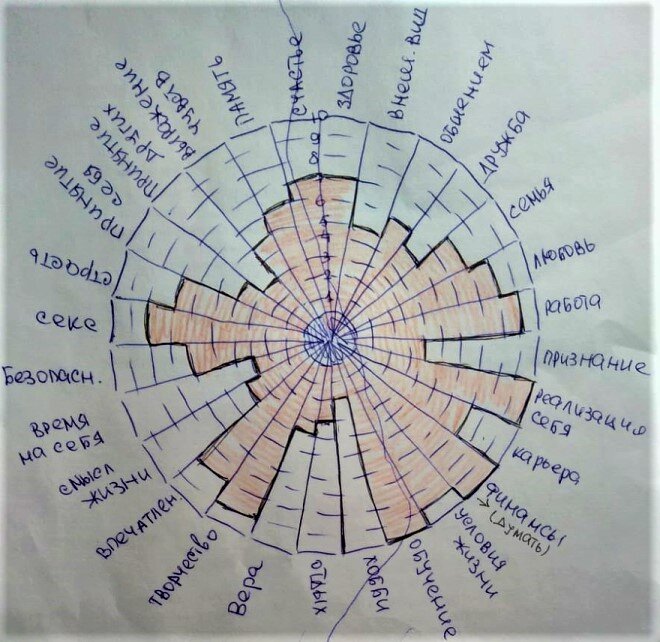 СЧАСТЬЕ
ЗДОРОВЬЕ
ВНЕШ. ВИД
ОБЩЕНИЕМ
ДРУЖБА
СЕМЬЯ
ЛЮБОВЬ
РАБОТА
ПРИЗНАНИЕ
РЕАЛИЗАЦИЯ
СЕБЯ
КАРЬЕРА
ФИНАНСЫ
→ (ДУМАТЬ)
УСЛОВИЯ
ЖИЗНИ
ОБУЧЕНИЕ
ХОББИ
ОТДЫХ
Вера
ТВОРЧЕСТВО
ВПЕЧАТЛЕН
СМЫСЛ
ЖИЗНИ
ВРЕМЯ
НА СЕБЯ
БЕЗОПАСН.
СЕКС
СТРАСТЬ
ПРИНЯТИЕ
СЕБЯ
ПРИНЯТИЕ
ДРУГИХ
ВЫРАЖЕНИЕ
ЧУВСТВ
ПАМЯТЬ